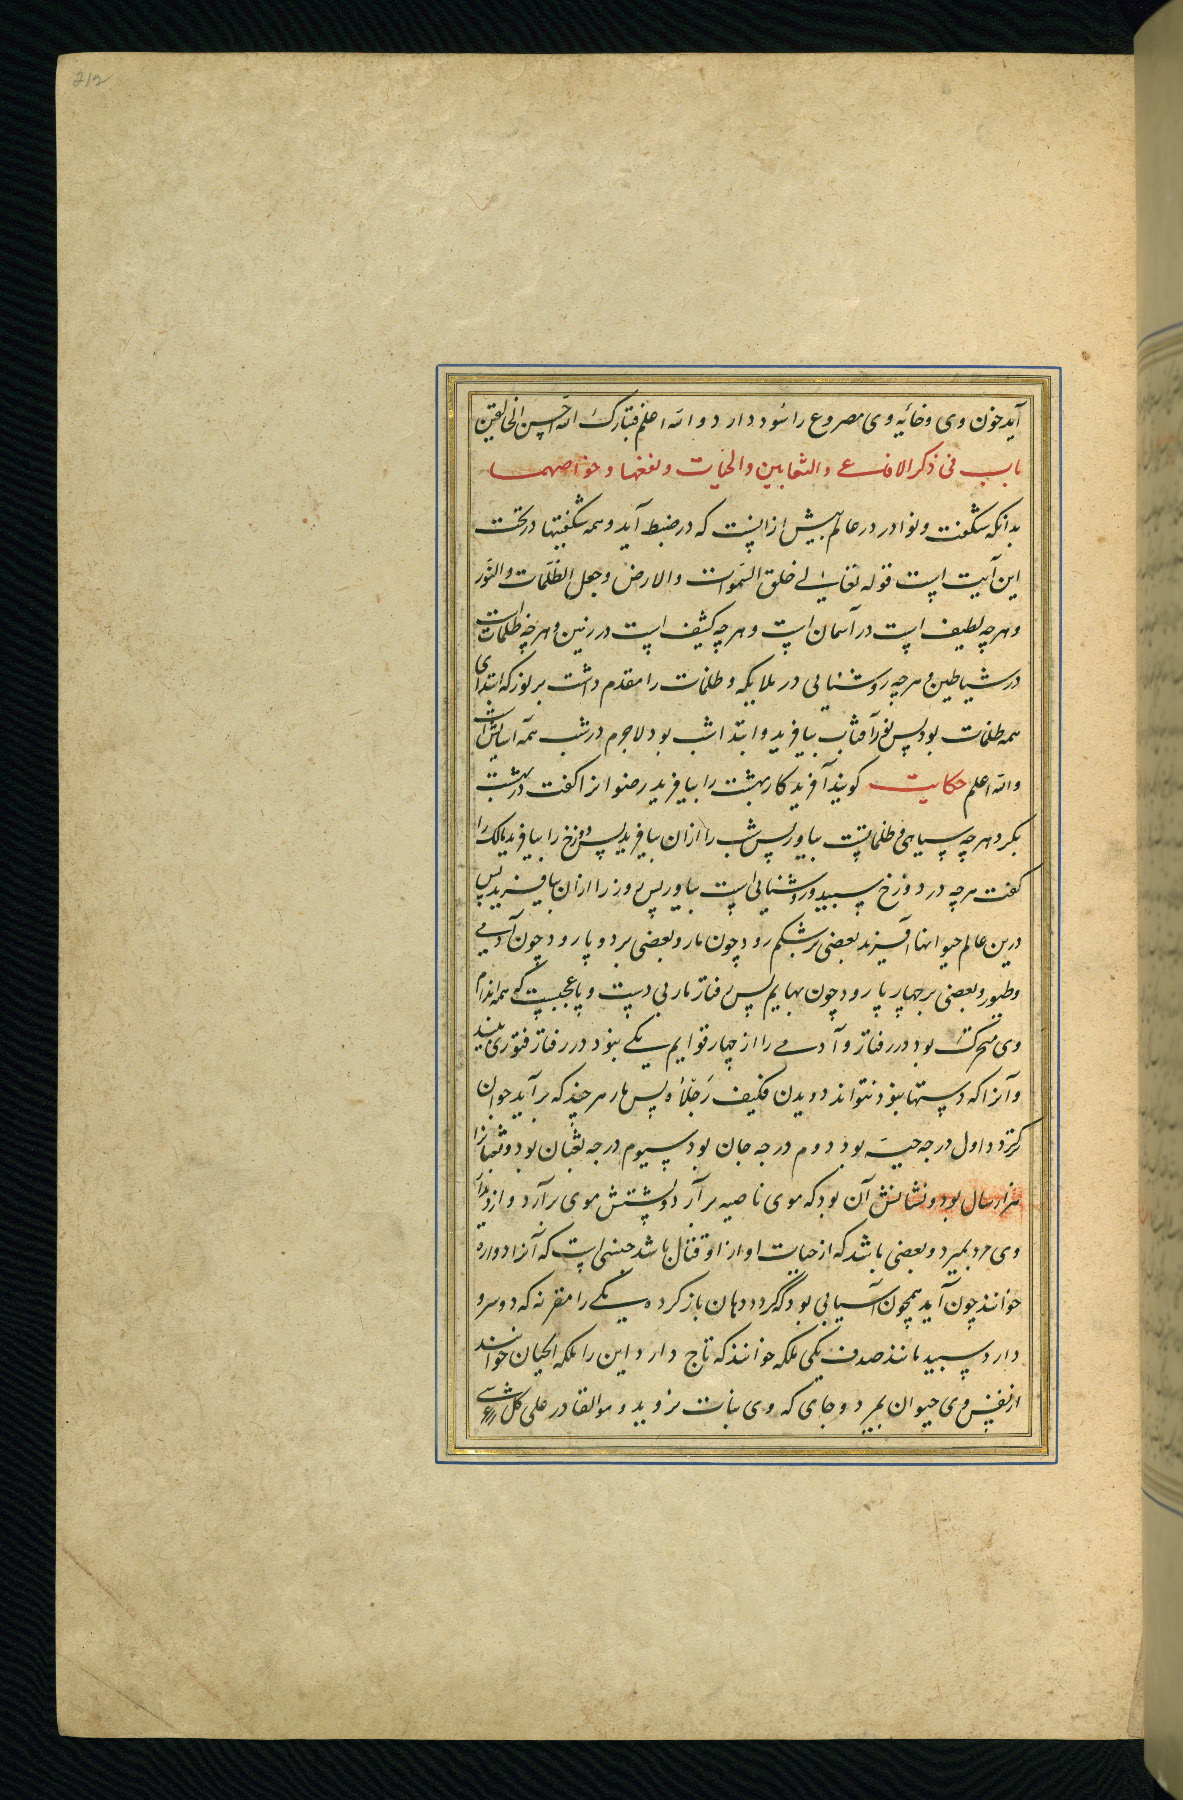 212
آید خون وی و خایه وی مصروع را سود دارد و الله اعلم فتبارک الله احسن الخالقین
باب فی ذکر الافاعی والثعابین والحیات و نفعها و خواصهما
بدانکه شگفت و نوادر در عالم بیش از انست که در ضبط آید و همه شگفتیها در تحت
این آیت است قوله تعالی خلق السموات والارض وجعل الظلمات والنور
و هرچه لطیف است در آسمان است و هرچه کثیف است در زمین و هرچه ظلمات است
در شیاطین و هرچه روشنایی در ملایکه و ظلمات را مقدم داشت بر نور که ابتدای
همه ظلمات بود پس نور آفتاب بیافرید و ابتدا شب بود لاجرم در شب همه آسایش است
والله اعلم حکایت گویند آفریدکار بهشت را بیافرید رضوانرا گفت در بهشت
بکرد هرچه سیاهی و ظلماتست بیاور پس شب را ازان بیافرید پس دوزخ را بیافرید مالک را
گفت هرچه در دوزخ سپید و روشنایی است بیاور پس روز را ازان بیافرید پس
درین عالم حیوانها آفرید بعضی بر شکم رود چون مار و بعضی بر دو پا رود چون آدمی
و طیور و بعضی بر چهار پا رود چون بهایم پس رفتار مار بی دست و پا عجبست که همه اندام
وی متحرک بود در رفتار و آدمی را از چهار قوایم یکی نبود در رفتار فتوری بیند
و آنرا که دستها نبود نتواند دویدن فکیف رجلاه پس مار هر چند که برآید جوان
گردد اول درجه حیه بود دوم درجه جان بود سیوم درجه ثعبان بود و ثعبانرا
هزار سال بود و نشانش آن بود که موی ناصیه برآرد و پشتش موی برآرد و از دیدار
وی مرد بمیرد و بعضی باشد که از حیات او از او قتال باشد جنسی است که آنرا دواره
خوانند چون آید همچون آسیایی بود که گردد دهان باز کرده یکی را مقرنه که دو سرو
دارد سپید مانند صدف یکی ملکه خوانند که تاج دارد این را ملکه الحیات خوانند
از نفس وی حیوان بمیرد و جای که وی نبات نروید و هو القادر علی کل شی